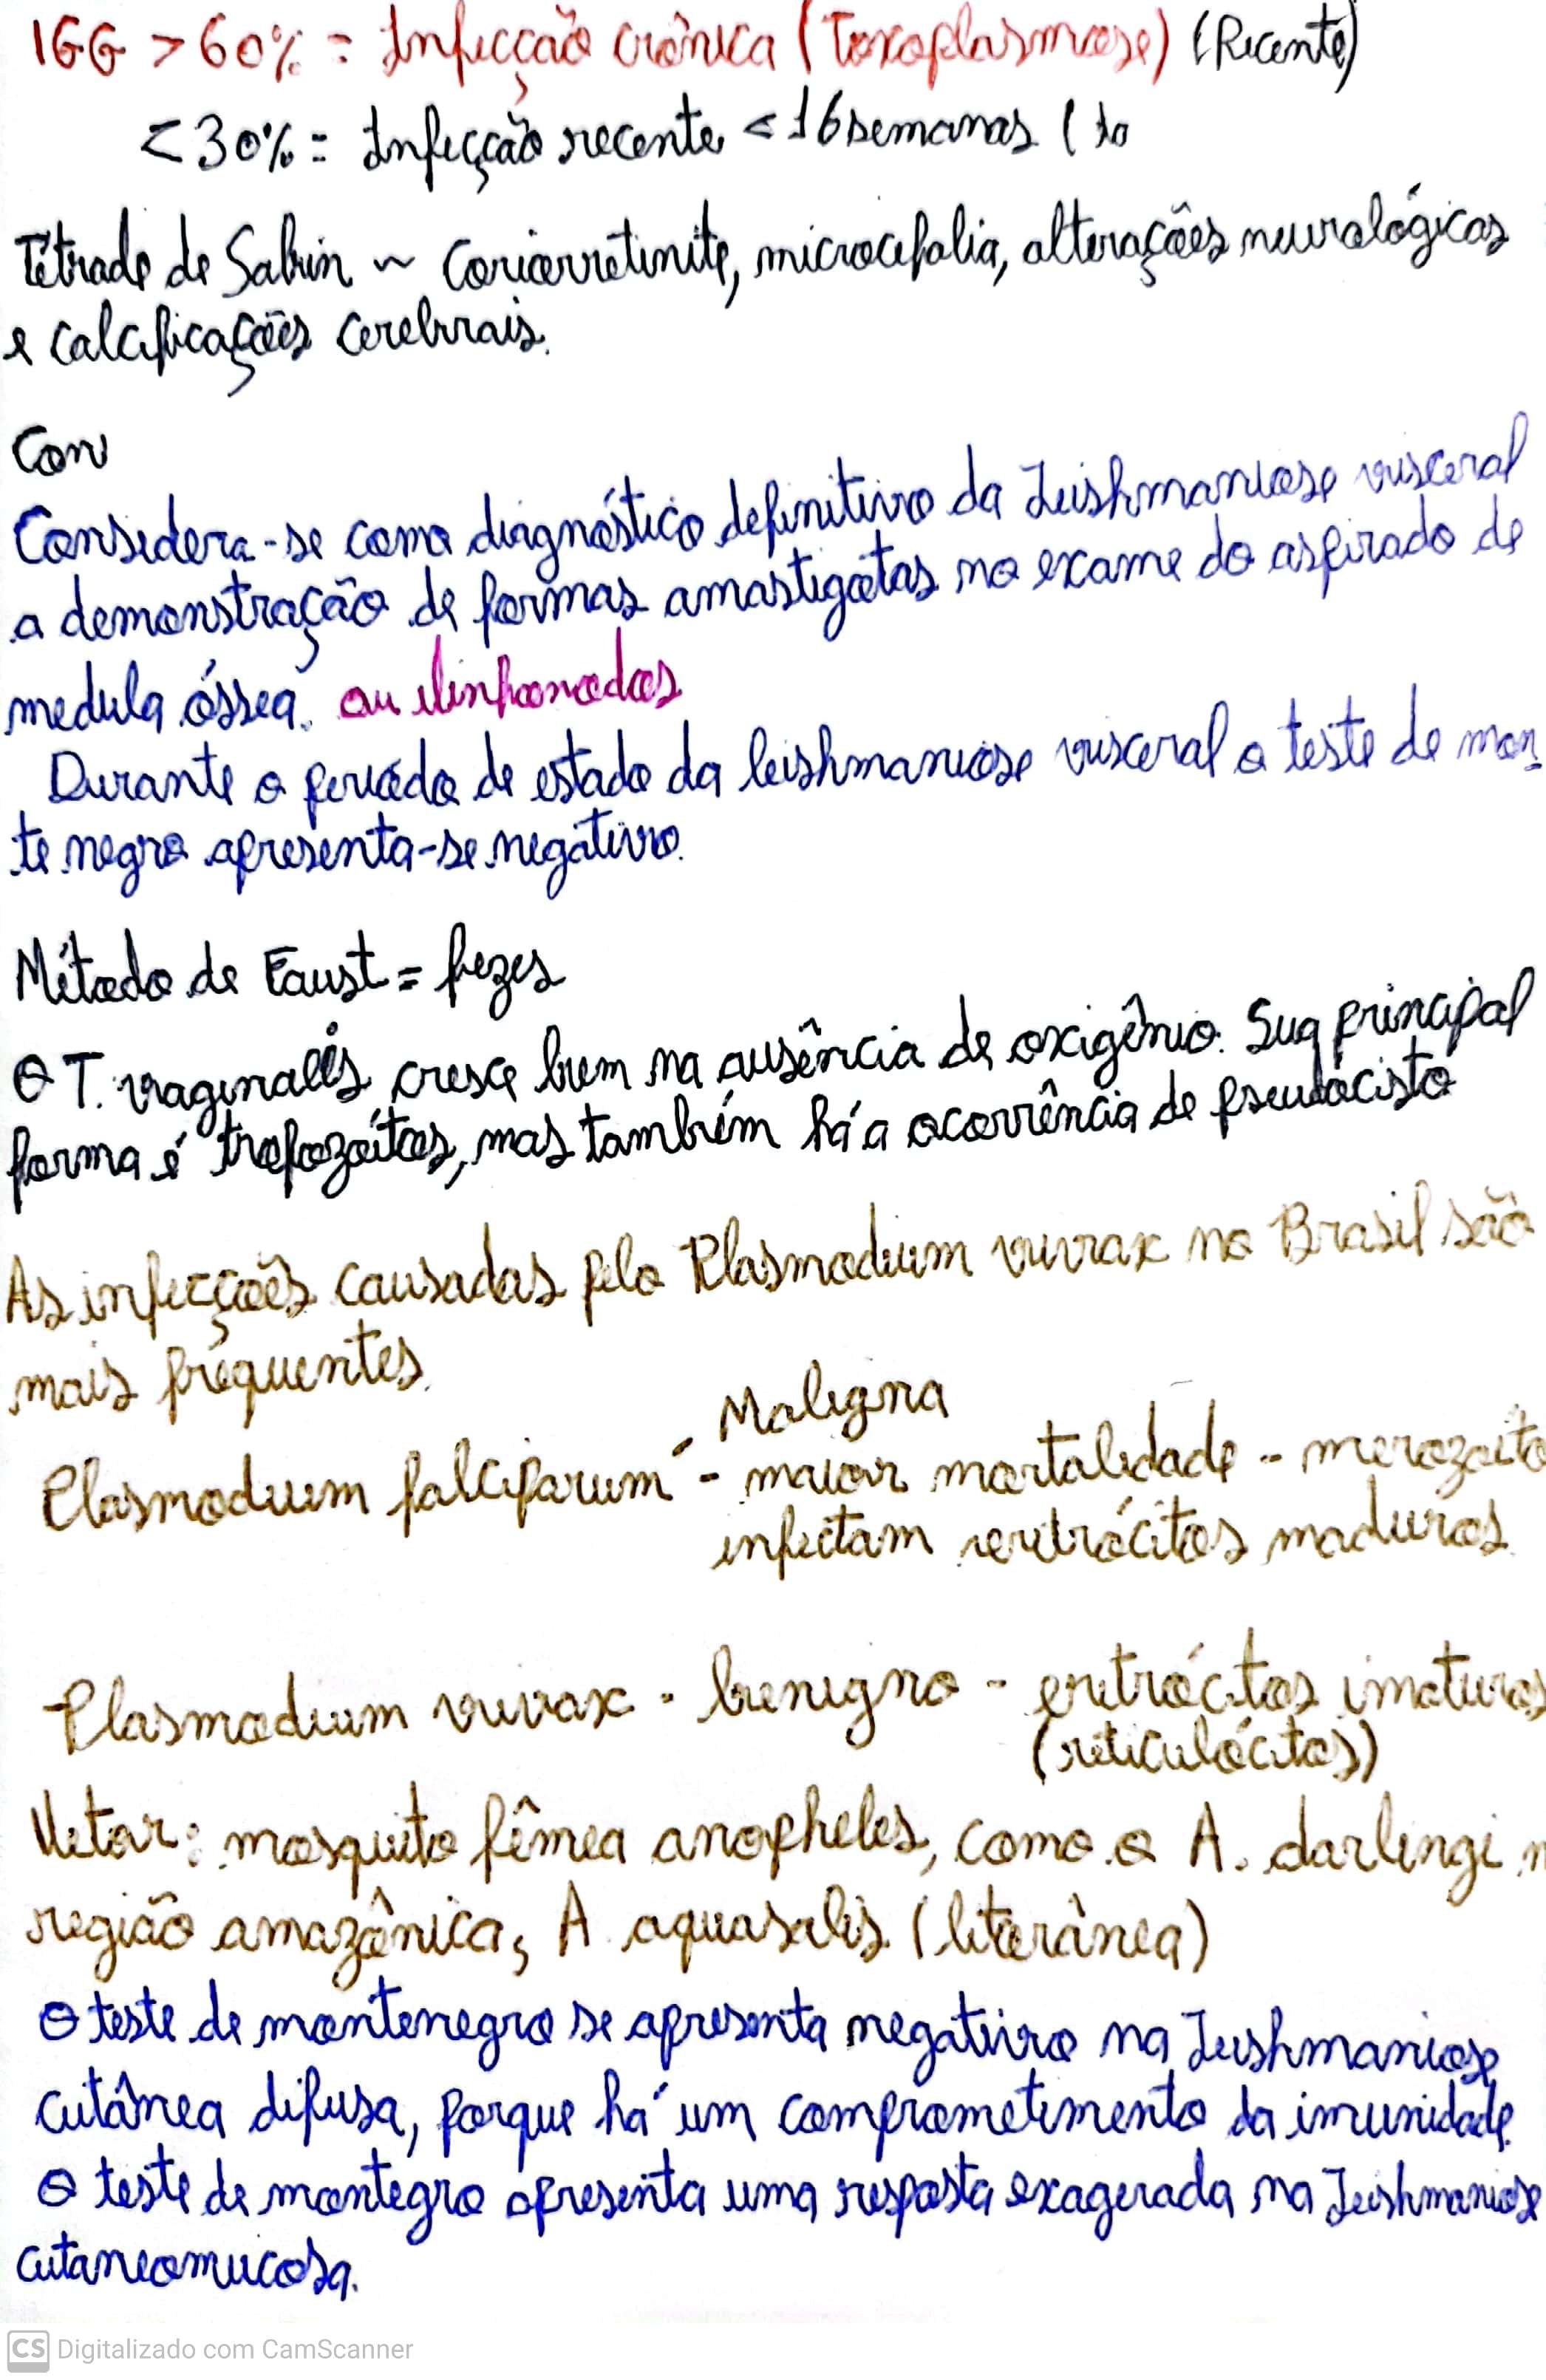 IGG > 60% = Infecção crônica (Toxoplasmose) (Recente)
< 30% = Infecção recente < 16 semanas ( to
Tétrade de Sabin ~ Coriorretinite, microcefalia, alterações neurológicas
e calcificações cerebrais.
Con
Considera-se como diagnóstico definitivo da Leishmaniose visceral
a demonstração de formas amastigotas no exame do aspirado de
medula óssea. ou linfonodos
Durante o período de estado da leishmaniose visceral o teste de mon
te negro apresenta-se negativo.
Método de Faust = fezes
O T. vaginalis cresce bem na ausência de oxigênio. Sua principal
forma é trofozoítos, mas também há a ocorrência de pseudocisto
As infecções causadas pelo Plasmodium vivax no Brasil são
mais frequentes.
Maligna
Plasmodium falciparum - maior mortalidade - merozoito
infectam eritrócitos maduros.
Plasmodium vivax - benigno - eritrócitos imaturos
(reticulócitos)
Vetor: mosquito fêmea anopheles, como o A. darlingi n
região amazônica, A aquasalis (literânea)
O teste de montenegro se apresenta negativo na Leishmaniose
cutânea difusa, porque há um comprometimento da imunidade.
O teste de montegro apresenta uma resposta exagerada na Leishmaniose
cutaneomucosa.
CS Digitalizado com CamScanner